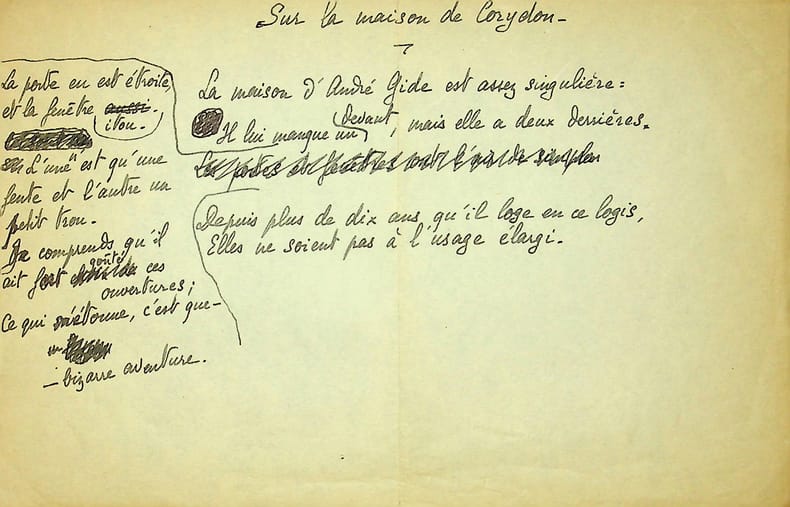 Sur la maison de Corydon –
La maison d'André Gide est assez singulière :
Il lui manque un Devant, mais elle a deux derrières.
La porte en est étroite,
et la fenêtre aussi.
itou.
L'une n'est qu'une
fente et l'autre un
petit trou.
Je comprends qu'il
ait fort goûté ces
ouvertures ;
Ce qui m'étonne, c'est que –
– bizarre aventure.
Depuis plus de dix ans, qu'il loge en ce logis,
Elles ne soient pas à l'usage élargi.